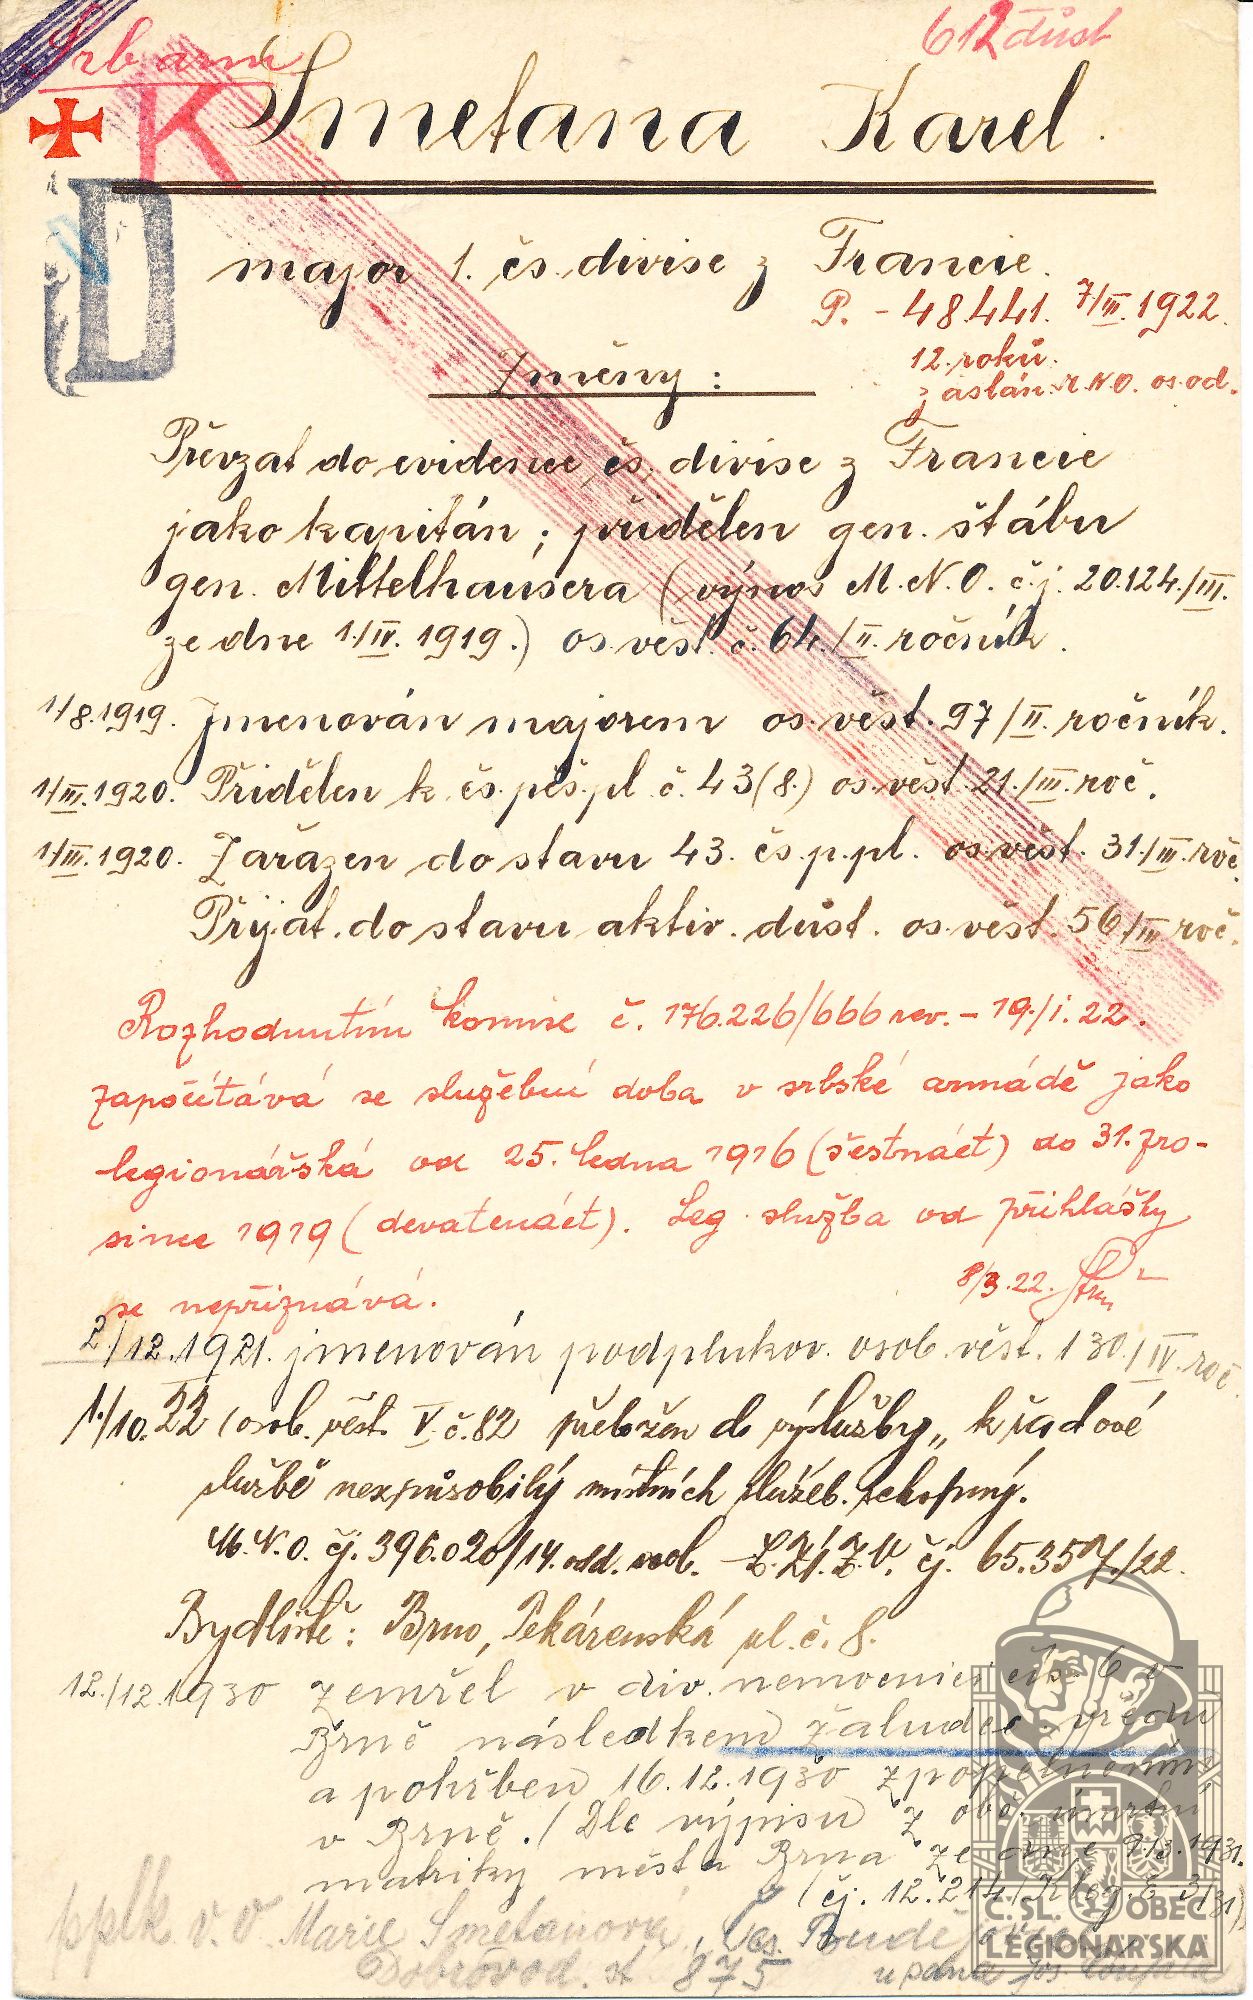 Srb. arm
612 důst
K
Smetana Karel.
D
major 1. čs. divise z Francie.
P. - 48441. 7/III. 1922.
12. roků.
zaslán. M.N.O. os. od.
Změny:
Převzat do evidence čs. divise z Francie
jako kapitán; přidělen gen. štábu
gen. Mittelhausera (výnos M.N.O. č.j. 20.124./III.
ze dne 1./IV. 1919.) os. věst. č. 64./II. ročník.
1/8.1919. Jmenován majorem os. věst. 97/II. ročník.
1/III. 1920. Přidělen k čs. pěš. pl. č. 43 (8.) os. věst. 21./III. roč.
1/III. 1920. Zařazen do stavu 43. čs. p. pl. os. věst. 31./III. roč.
Přijat do stavu aktiv. důst. os. věst. 56/III roč.
Rozhodnutím komise č. 176.226/666 rev. - 19./1. 22.
započítává se služební doba v srbské armádě jako
legionářská od 25. ledna 1916 (šestnáct) do 31. pro-
since 1919 (devatenáct). Leg. služba od přihlášky
se nepřiznává.
8/3. 22.
2/12. 1921. jmenován podplukov. osob. věst. 130./IV. roč.
1./10. 22 (osob. věst. V. č. 82 přeložen do výslužby „k řadové
službě nezpůsobilý místních služeb. schopný.
M.N.O. čj. 396.020/14. odd. osob. - Z.Z.V. čj. 65.357/22.
Bydliště: Brno, Pekárenská ul. č. 8.
12./12. 1930 zemřel v div. nemocnici čís. 6 v
Brně následkem žaludeč. vředu
a pohřben 16.12.1930 zpopelněním
v Brně. / Dle výpisu z obč. úmrtní
matriky města Brna ze dne 9./3. 1931.
(čj. 12.214./Kleg. 31)
pplk. v. v. Marie Smetanová, Čes. Budějovice
Dobrovod. 875
u pana Jos.
Č. SL. OBEC
LEGIONÁŘSKÁ